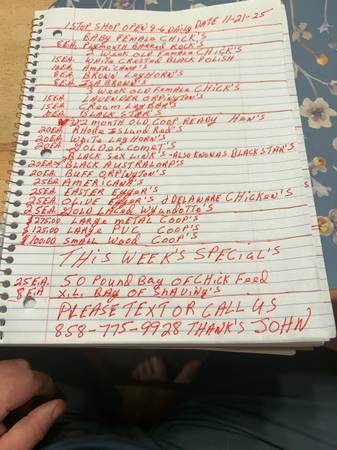 1 STOP SHOP OPEN 9-6 DAILY DATE 11-21-25
BABY FEMALE CHICK'S
8EA. PLYMOUTH BARRED ROCK'S
2 WEEK OLD FEMALE CHICK'S
15EA WHITE CRESTED BLACK POLISH
10EA. AMERICANA'S
8EA BROWN LEGHORN'S
8EA ISA BROWN'S
3 WEEK OLD FEMALE CHICK'S
15EA. LAVENDER ORPINGTON'S
15EA CREAM LEGBAR'S
10EA. BLACK STAR'S
2 MONTH OLD COOP READY HEN'S
20EA RHODE ISLAND RED'S
20EA WHITE LEGHORN'S
20EA GOLDEN COMET'S
BLACK SEX LINK'S -ALSO KNOWN AS BLACK STAR'S
20EA BLACK AUSTRALORP'S
20EA. BUFF ORPINGTON'S
25EA AMERICANA'S
25EA EASTER EGGER'S
25EA OLIVE EGGER'S & DELAWARE CHICKEN'S
25EA GOLD LACED WYANDOTTE'S
$275.00 LARGE METAL COOP'S
$125.00 LARGE PVC COOP'S
$100.00 SMALL WOOD COOP'S
THIS WEEK'S SPECIAL'S
25EA. 50 POUND BAG OF CHICK FEED
8EA X.L. BAG OF SHAVING'S
PLEASE TEXT OR CALL US
858-775-9928 THANK'S JOHN